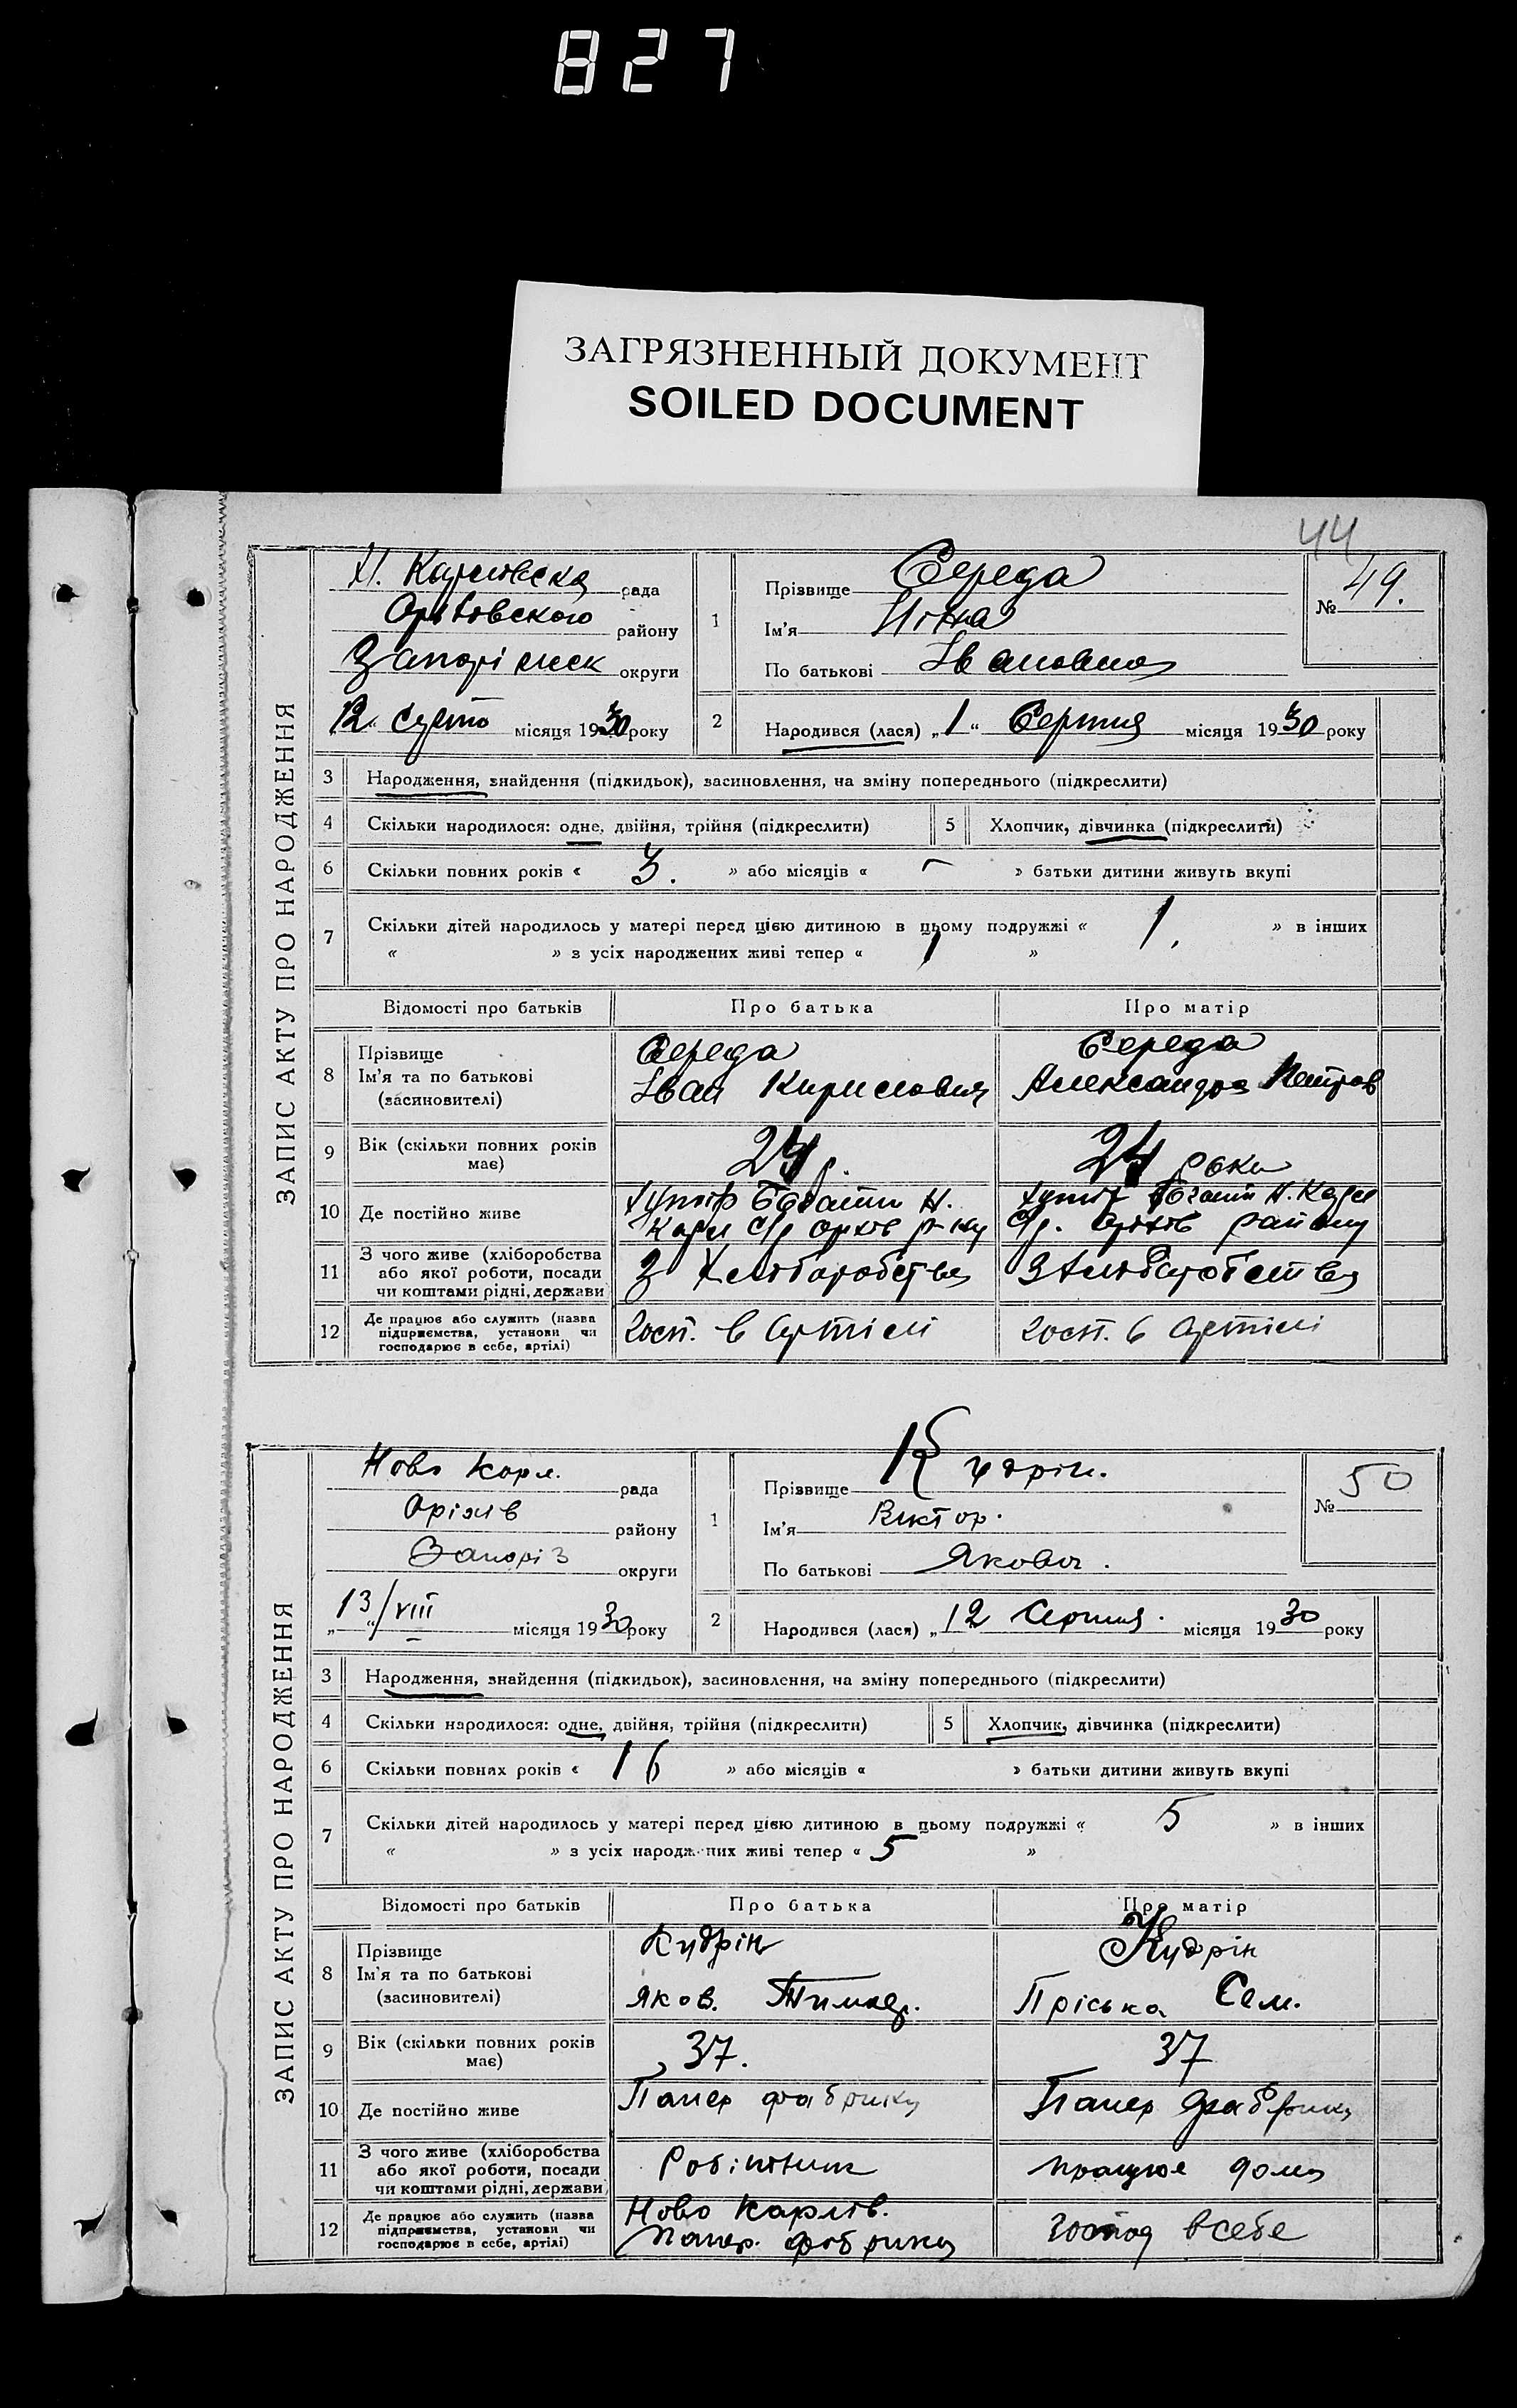 827
ЗАГРЯЗНЕННЫЙ ДОКУМЕНТ
SOILED DOCUMENT
44
ЗАПИС АКТУ ПРО НАРОДЖЕННЯ
рада
району
Запоріжжск округи
12 місяця 1930 року
1 Прізвище Середа
Ім'я Ніна
По батькові Івановна
№ 49.
2 Народився (лася) „1“ Серпня місяця 1930 року
3 Народження, знайдення (підкидьок), засиновлення, на зміну попереднього (підкреслити)
4 Скільки народилося: одне, двійня, трійня (підкреслити) 5 Хлопчик, дівчинка (підкреслити)
6 Скільки повних років « 3. » або місяців « – » батьки дитини живуть вкупі
7 Скільки дітей народилось у матері перед цією дитиною в цьому подружжі « 1. » в інших
« » з усіх народжених живі тепер « 1 »
Відомості про батьків Про батька Про матір
8 Прізвище
Ім'я та по батькові
(засиновителі)
Середа
Іван Кирилович
Середа
Александра Петров
9 Вік (скільки повних років має) 24 р. 24 роки
10 Де постійно живе
11 З чого живе (хліборобства або якої роботи, посади чи коштами рідні, держави
З Хліборобства
З Хліборобства
12 Де працює або служить (назва підприємства, установи чи господарює в себе, артілі)
госп. в Артілі
госп. в Артілі
ЗАПИС АКТУ ПРО НАРОДЖЕННЯ
Ново Карл. рада
Оріхів району
Запоріз округи
„13“/VIII місяця 1930 року
1 Прізвище Кудрін.
Ім'я Віктор.
По батькові Якович.
№ 50
2 Народився (лася) „12 Серпня. місяця 1930 року
3 Народження, знайдення (підкидьок), засиновлення, на зміну попереднього (підкреслити)
4 Скільки народилося: одне, двійня, трійня (підкреслити) 5 Хлопчик, дівчинка (підкреслити)
6 Скільки повних років « 16 » або місяців « » батьки дитини живуть вкупі
7 Скільки дітей народилось у матері перед цією дитиною в цьому подружжі « 5 » в інших
« » з усіх народжених живі тепер « 5 »
Відомості про батьків Про батька Про матір
8 Прізвище
Ім'я та по батькові
(засиновителі)
Кудрін
Яков.
Кудрін
Пріська Сем.
9 Вік (скільки повних років має) 37. 37
10 Де постійно живе Папер фабрика Папер фабрика
11 З чого живе (хліборобства або якої роботи, посади чи коштами рідні, держави
Робітник
працює дома
12 Де працює або служить (назва підприємства, установи чи господарює в себе, артілі)
Ново Карлів.
Папер. фабрика
господ в себе